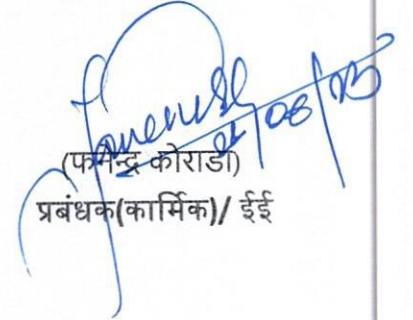 08/25
(फणेन्द्र कोराडा)
प्रबंधक(कार्मिक)/ ईई